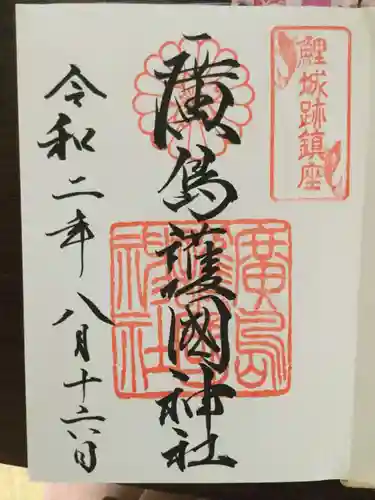 鯉城跡鎮座
廣島護國神社
廣島護國神社
令和二年八月十六日